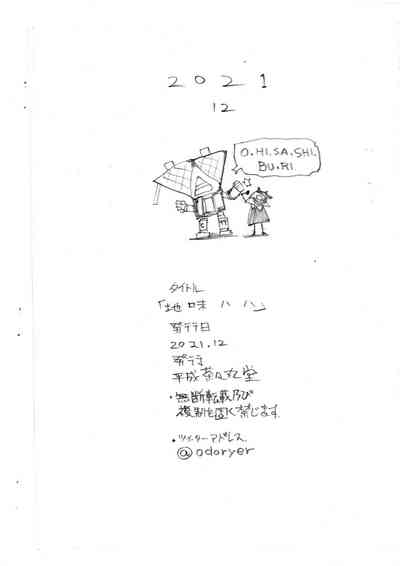 2021
12
O.HI.SA.SHI.
BU.RI
タイトル
「地味ハハ」
発行日
2021.12
発行者
平成茶々丸堂
・無断転載及び
複製を固く禁じます
・ツイッターアドレス
@odoryer